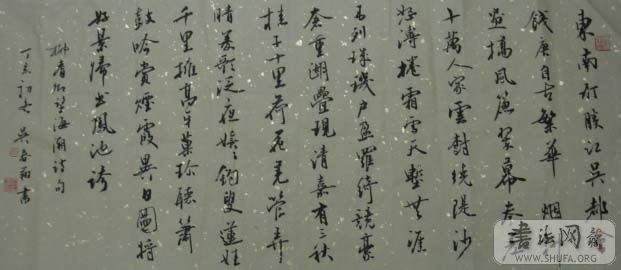 東南形勝江吳都
錢唐自古繁華烟
画橋風簾翠幕参
十萬人家雲樹繞堤沙
怒濤捲霜雪天塹無涯
市列珠璣户盈羅綺競豪
奢重湖疊巘清嘉有三秋
桂子十里荷花羌管弄
晴菱歌泛夜嬉嬉釣叟蓮娃
千里擁高牙乘醉聽簫
鼓吟賞煙霞異日圖將
好景歸去鳳池誇
柳耆卿望海潮詩句
丁亥初 吳春 書
書法网
WWW.SHUFA.ORG